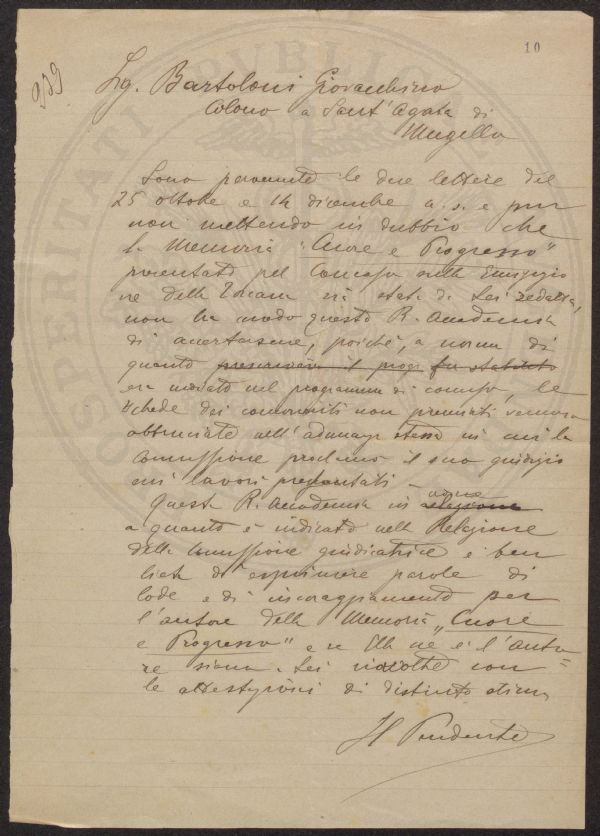 10
939
Sig. Bartoloni Giovacchino
Colono a Sant'Agata di
Mugello
Sono pervenute le due lettere del
25 ottobre e 14 dicembre a. s. e pur
non mettendo in dubbio che
la Memoria "Cuore e Progresso"
presentata pel Concorso sulla Emigrazio
ne della Toscana sia stata da Lei redatta,
non ha modo questa R. Accademia
di accertarsene, poichè, a norma di
quanto prescriveva il progr fu stabilito
era indicato nel programma di concorso, le
schede dei concorrenti non premiati vennero
abbruciate nell'adunanza stessa in cui la
Commissione proclamò il suo giudizio
sui lavori presentati -
Questa R. Accademia in
a quanto è indicato nella Relazione
della Commissione giudicatrice è ben
lieta di esprimere parole di
lode e di incoraggiamento per
l'autore della Memoria "Cuore
e Progresso" e se Ella ne è l'auto=
re siano a Lei rivolte con
le attestazioni di distinta stima
Il Presidente
PROSPERITATI PVBLICAE